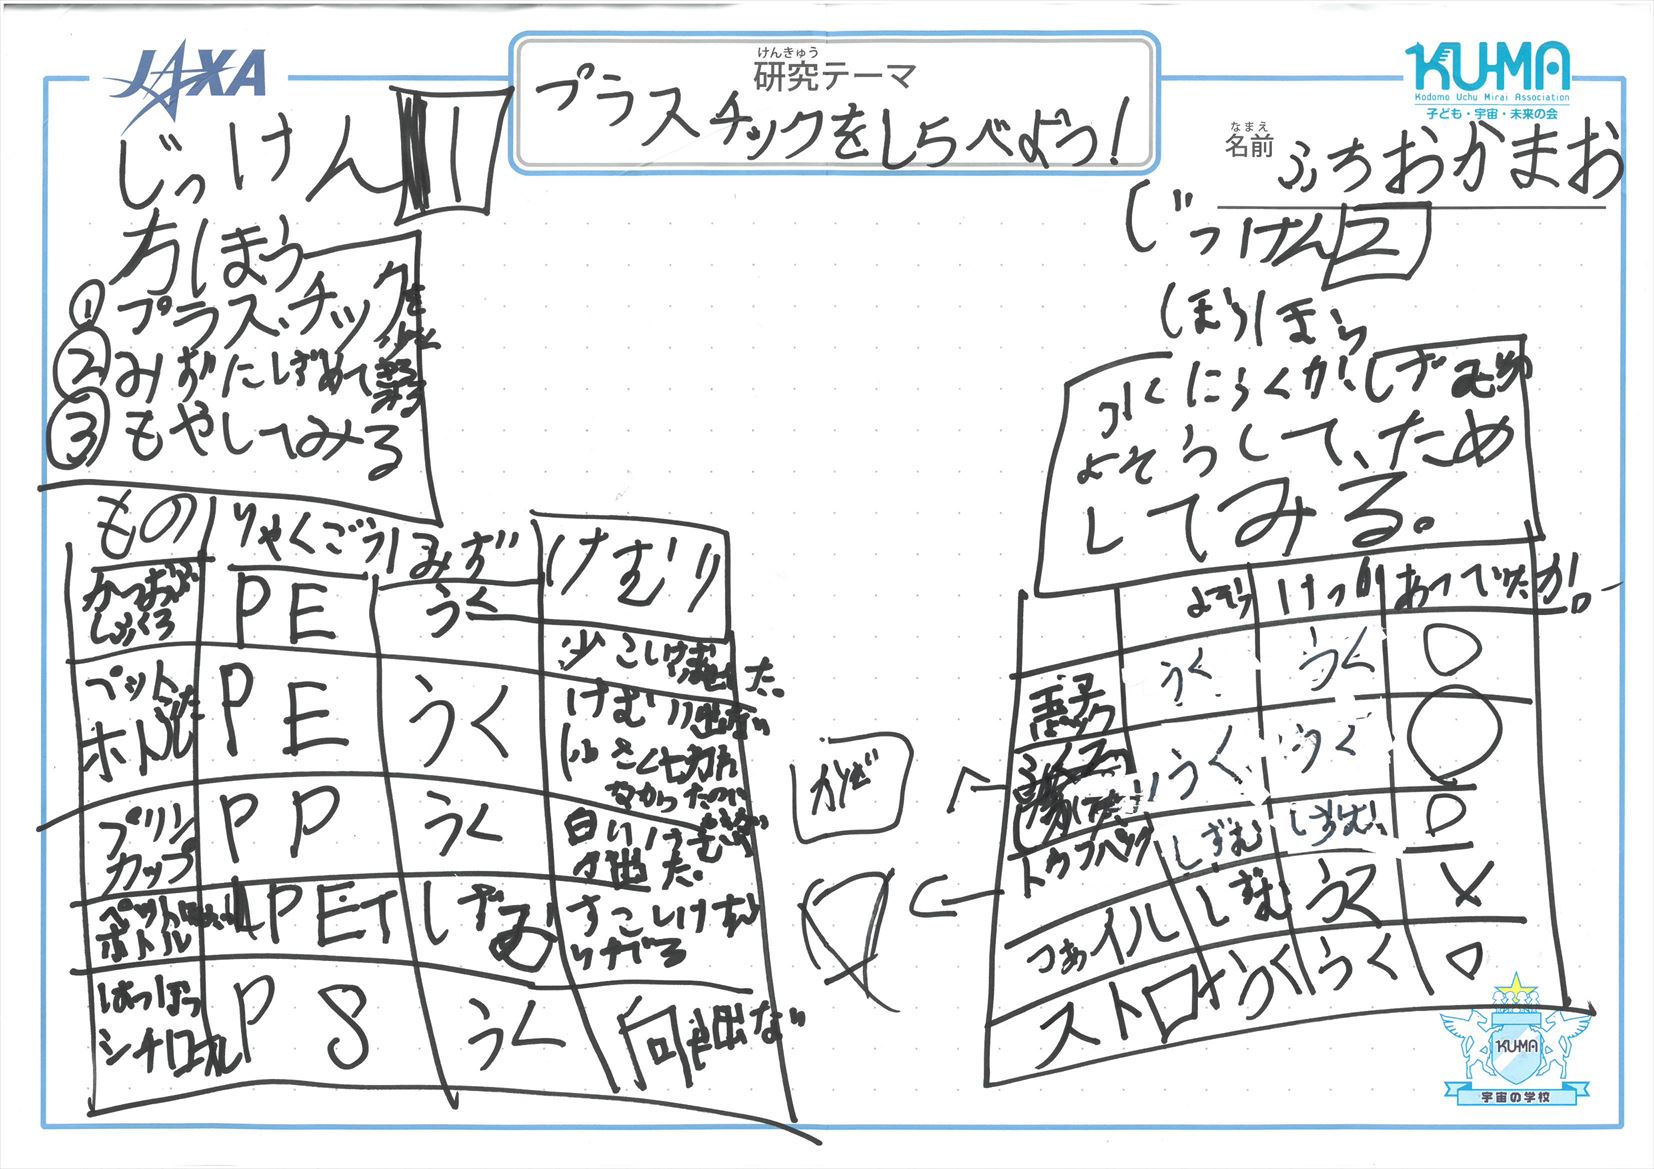 JAXA
けんきゅう
研究テーマ
プラスチックをしらべよう!
KU-MA
Kodomo Uchu Mirai Association
子ども・宇宙・未来の会
なまえ
名前
ふちおかまお
じっけん 1
方ほう
① プラスチックを
② みずにしずめて
③ もやしてみる
もの りゃくごう みず けむり
かつおぶしふくろ PE うく
ペットボトルふた PE うく けむり出ない
プリンカップ PP うく 白いけむり
ペットボトル PET しずむ すこしけむりがでる
はっぽうスチロール PS うく 何も出ない
かぜ
じっけん 2
ほうほう
うくか、しずむか
よそうして、ため
してみる。
よそう けっか あっていたか!
玉子パック うく うく ○
うく うく ○
トウフパック しずむ しずむ ○
つぁイル しずむ うく ×
ストロー うく うく ○
KU-MA
宇宙の学校